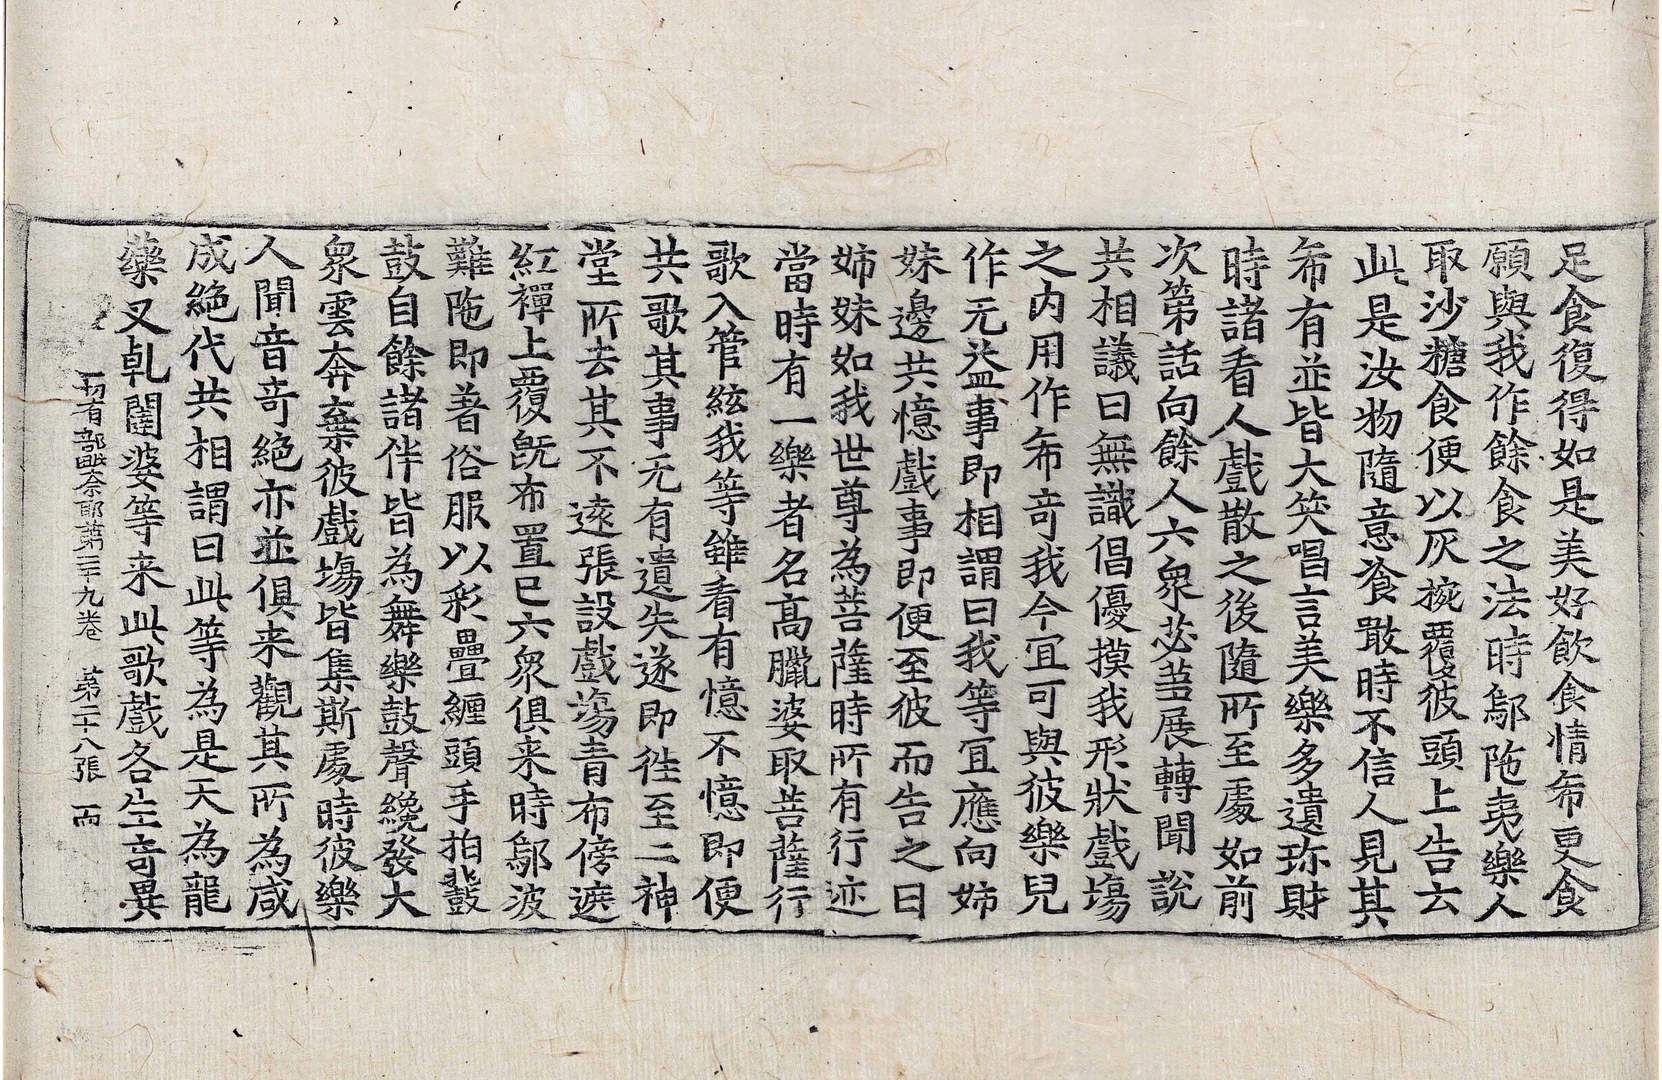 足食復得如是美好飲食情希更食
願與我作餘食之法時鄔陁夷樂人
取沙糖食便以灰捥覆彼頭上告云
此是汝物隨意飡敢時不信人見其
希有並皆大笑唱言美樂多遺珎財
時諸看人戲散之後隨所至處如前
次第話向餘人六衆苾蒭展轉聞說
共相議曰無識倡優摸我形狀戲塲
之內用作希竒我今宜可與彼樂兒
作无益事即相謂曰我等宜應向姉
妹邊共憶戲事即便至彼而告之曰
姉妹如我世尊為菩薩時所有行迹
當時有一樂者名高臘婆取菩薩行
歌入管絃我等雖看有憶不憶即便
共歌其事无有遺失遂即徃至二神
堂所去其不遠張設戲塲青布傍遮
紅襌上覆旣布置已六衆俱来時鄔波
難陁即著俗服以彩疊纒頭手拍鼓
鼓自餘諸伴皆為舞樂鼓聲纔發大
衆雲奔棄彼戲塲皆集斯處時彼樂
人聞音竒絶亦並俱来觀其所為咸
成絶代共相謂曰此等為是天為龍
藥叉乹闥婆等来此歌戲各生竒異
一切有部毗奈耶第三十九卷 第二十八張 而